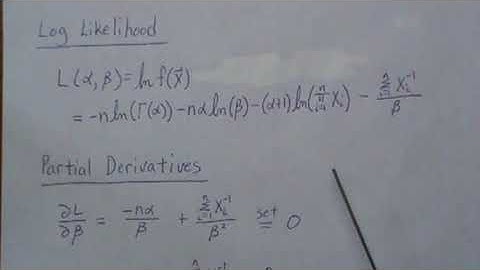 Log Likelihood
L(α,β)= ln f(x⃗)
= -n ln(Γ(α)) - nα ln(β) - (α+1) ln(∏ᵢ₌₁ⁿ Xᵢ) - (∑ᵢ₌₁ⁿ Xᵢ⁻¹)/β
Partial Derivatives
∂L/∂β = -nα/β + (∑ᵢ₌₁ⁿ Xᵢ⁻¹)/β² set= 0